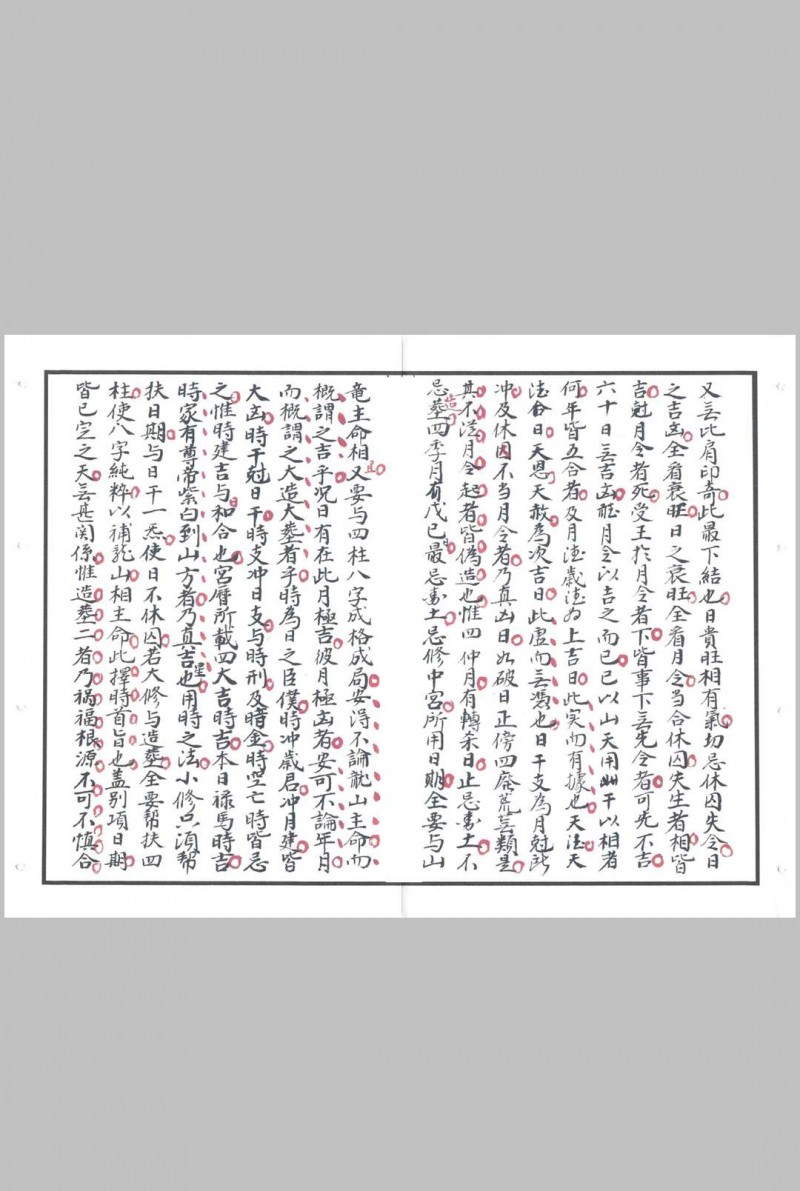 又无此肩印奇此最下結也日貴旺相有氣切忌休囚失令日
之吉凶全看衰旺日之衰旺全看月令当合休囚失生者相皆
吉尅月令者死受王於月令者下皆事下无先令者可死不吉
六十日无吉凶旺月令以吉之而已已以山天用卌干以相者
何年皆五合者及月法歲法为上吉日此实而有據也天法天
法合日天恩天赦為次吉日此虛而无馮也日干支為月尅所
冲及休囚不当月令者乃真凶日如破日正傍四廢荒芜類是
其不從月令起者皆偽造也惟四仲月有轉杀日止忌動土不
忌造葬四季月有戊已最忌動土忌修中宮所用日期全要与山
竜主命相且又要与四柱八字成格成局安淂不論龍山主命而
概謂之吉乎况日有在此月極吉彼月極凶者安可不論年月
而概謂之大造大葬者乎時為日之臣僕時冲歲君冲月建皆
大凶時干尅日干時支冲日支与時刑及暗金時空亡時皆忌
之惟時建吉与和合也宮曆所載四大吉時吉本日禄馬時吉
時家有尊帝紫白到山方者乃真吉星也用時之法小修只須幫
扶日期与日干一炁使日不休囚若大修与造葬全要幫扶四
柱使八字純粹以補龍山相主命此擇時首旨也盖别項日期
皆已定之天无甚関係惟造葬二者乃禍福根源不可不慎合